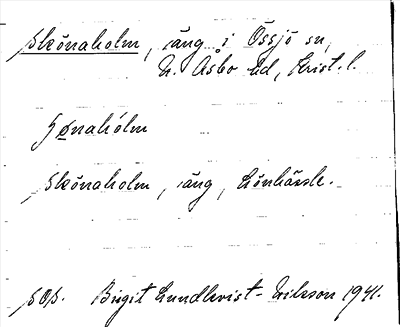 Skönaholm, äng i Össjö sn,
N. Åsbo hd, Krist. l.
Skönaholm, äng, Lönhässle.
sos. Birgit Lundkvist-Nilsson 1941.